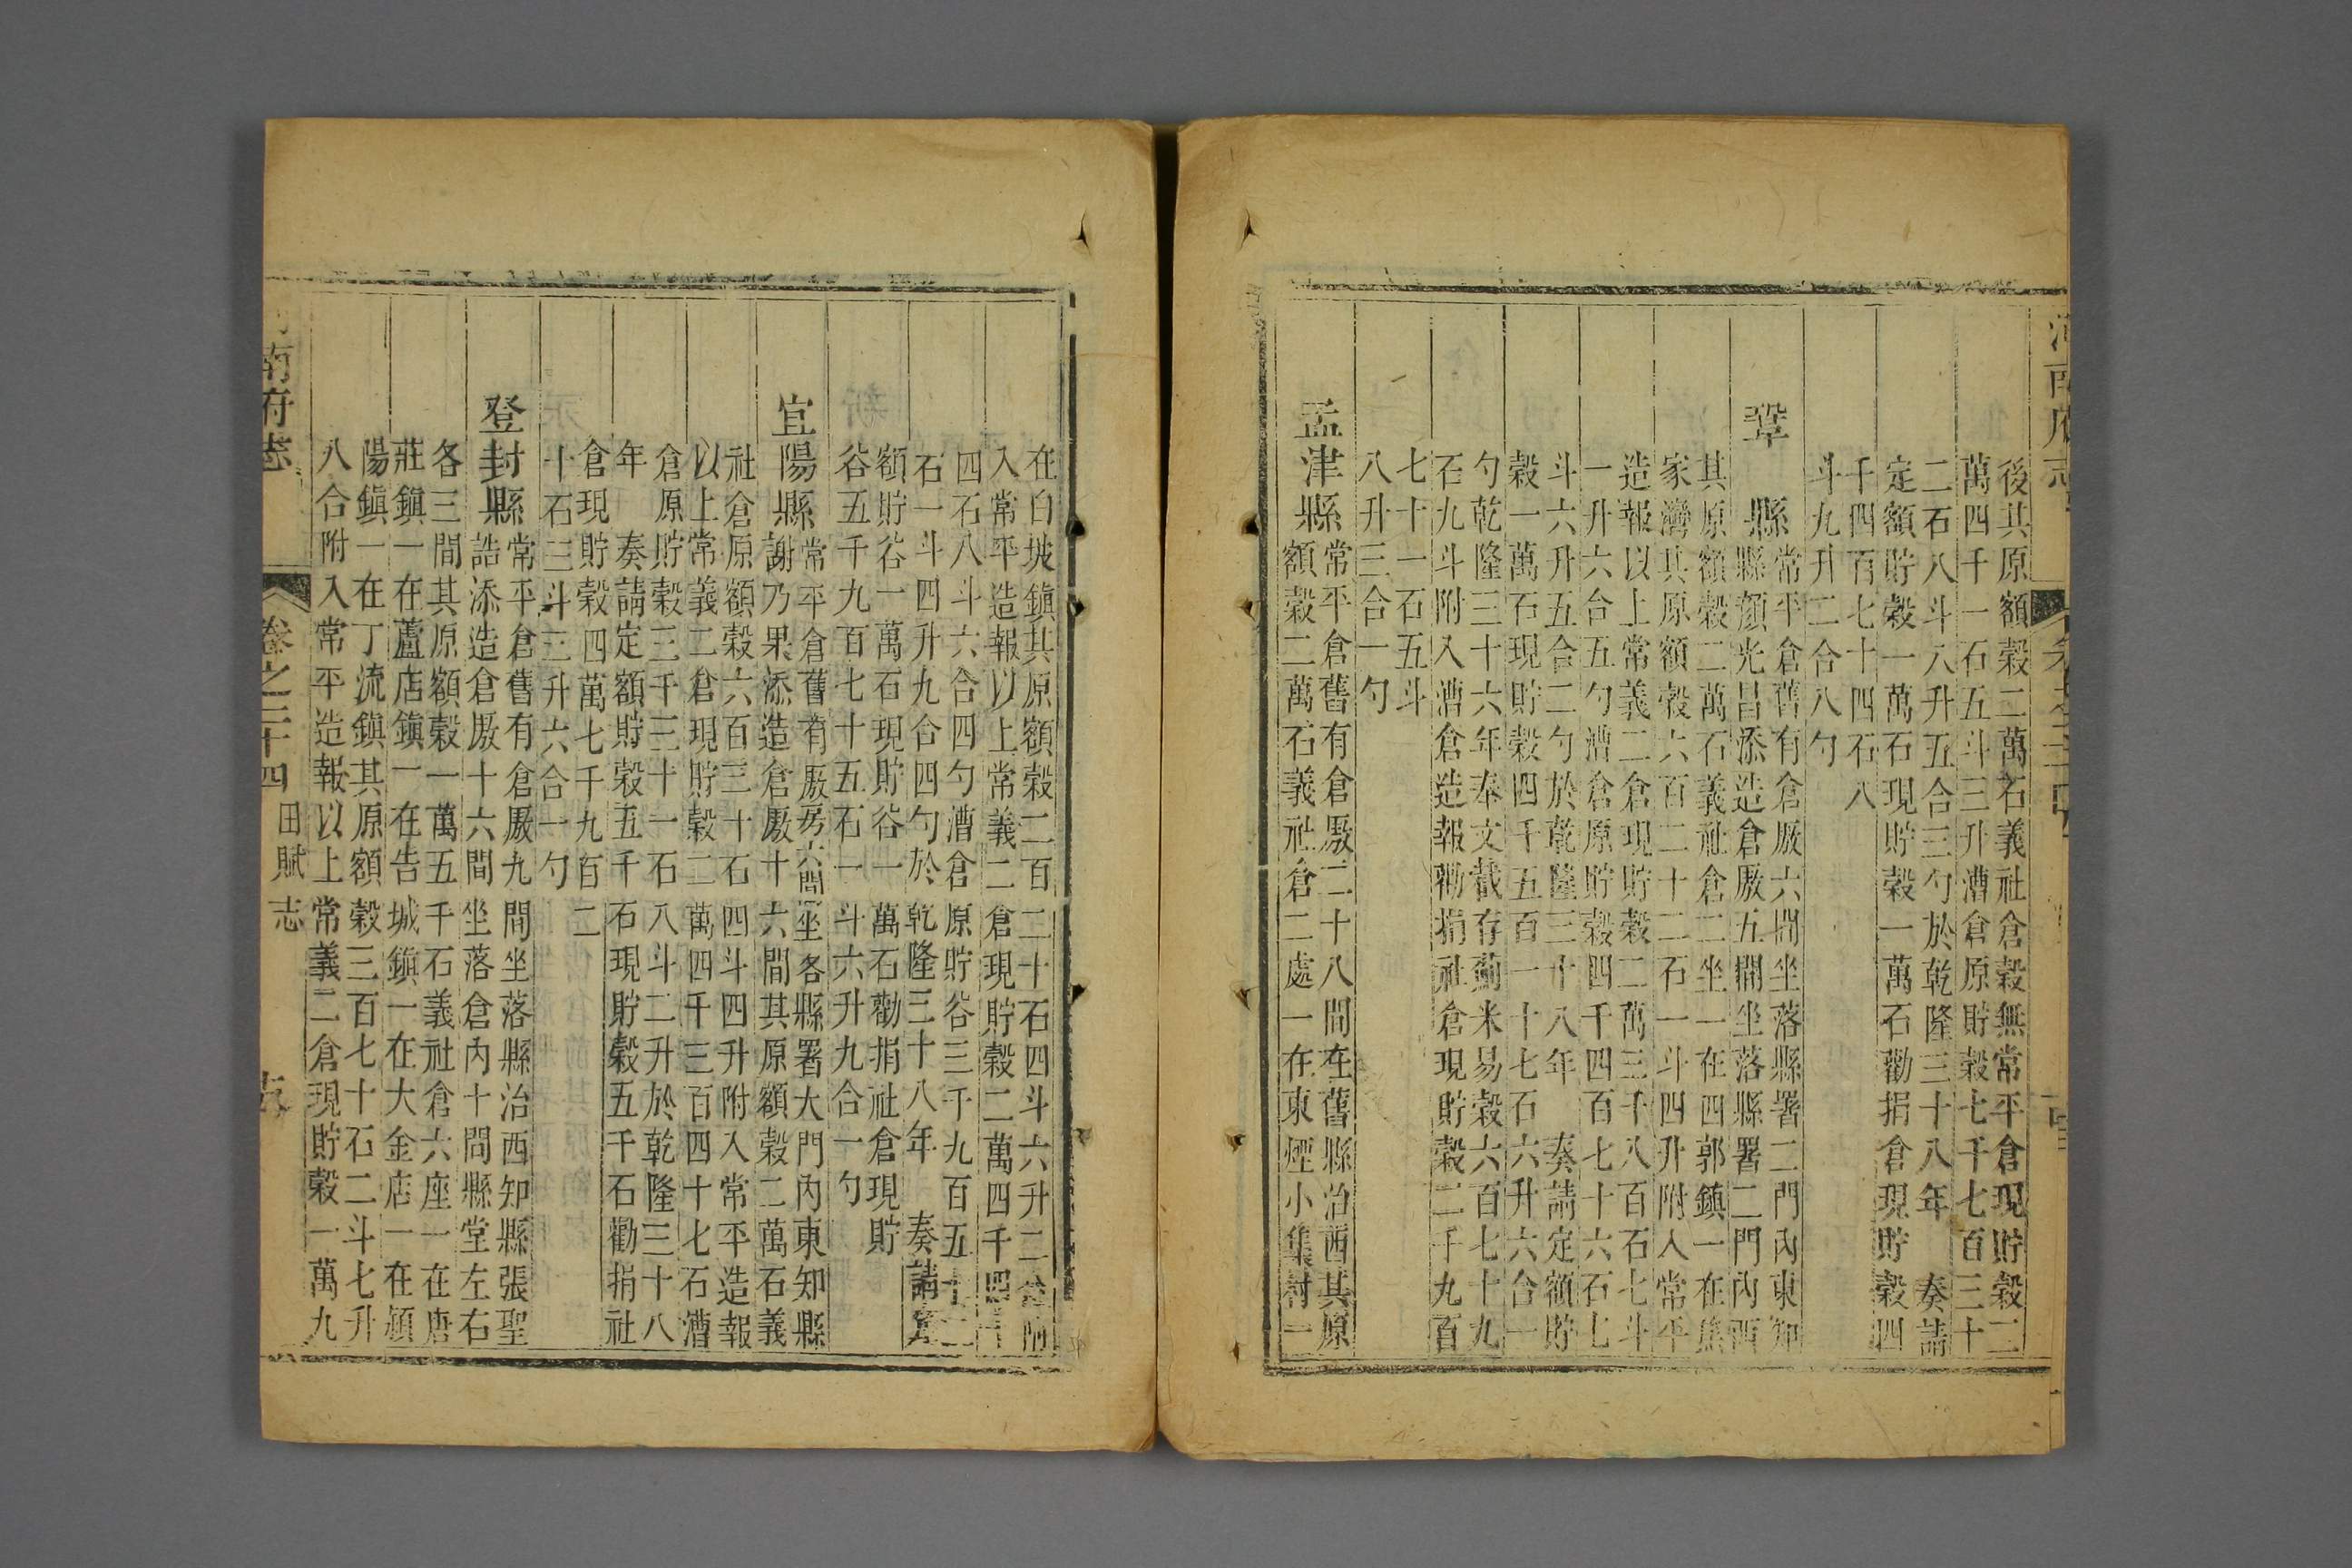 後其原額穀二萬石義社倉穀無常平倉現貯穀二
萬四千一石五斗三升漕倉原貯穀七千七百三十
二石八斗八升五合三勺於乾隆三十八年　奏請
定額貯穀一萬石現貯穀一萬石勸捐倉現貯穀四
千四百七十四石八
斗九升二合八勺
鞏　縣
常平倉舊有倉厫六間坐落縣署二門內東知
縣顏光昌添造倉厫五間坐落縣署二門內西
其原額穀二萬石義社倉二坐一在四郭鎮一在焦
家灣其原額穀六百二十二石一斗四升附入常平
造報以上常義二倉現貯穀二萬三千八百石七斗
一升六合五勺漕倉原貯穀四千四百七十六石七
斗六升五合二勺於乾隆三十八年　奏請定額貯
穀一萬石現貯穀四千五百一十七石六升六合一
勺乾隆三十六年奉文截存薊米易穀六百七十九
石九斗附入漕倉造報勸捐社倉現貯穀二千九百
七十一石五斗
八升三合一勺
孟津縣
常平倉舊有倉厫二十八間在舊縣治西其原
額穀二萬石義社倉二處一在東煙小集村一
在白坡鎮其原額穀二百二十石四斗六升二合附
入常平造報以上常義二倉現貯穀二萬四千四百
四石八斗六合四勺漕倉原貯谷三千九百五十二
石一斗四升九合四勺於乾隆三十八年　奏請定
額貯谷一萬石現貯谷一萬石勸捐社倉現貯
谷五千九百七十五石一斗六升九合一勺
宜陽縣
常平倉舊有厫房六間坐各縣署大門內東知縣
謝乃果添造倉厫十六間其原額穀二萬石義
社倉原額穀六百三十石四斗四升附入常平造報
以上常義二倉現貯穀二萬四千三百四十七石漕
倉原貯穀三千三十一石八斗二升於乾隆三十八
年　奏請定額貯穀五千石現貯穀五千石勸捐社
倉現貯穀四萬七千九百二
十石三斗三升六合一勺
登封縣
常平倉舊有倉厫九間坐落縣治西知縣張聖
誥添造倉厫十六間坐落倉內十間縣堂左右
各三間其原額穀一萬五千石義社倉六座一在唐
莊鎮一在蘆店鎮一在告城鎮一在大金店一在潁
陽鎮一在丁流鎮其原額穀三百七十石二斗七升
八合附入常平造報以上常義二倉現貯穀一萬九
南府志
卷之二十四
田賦志